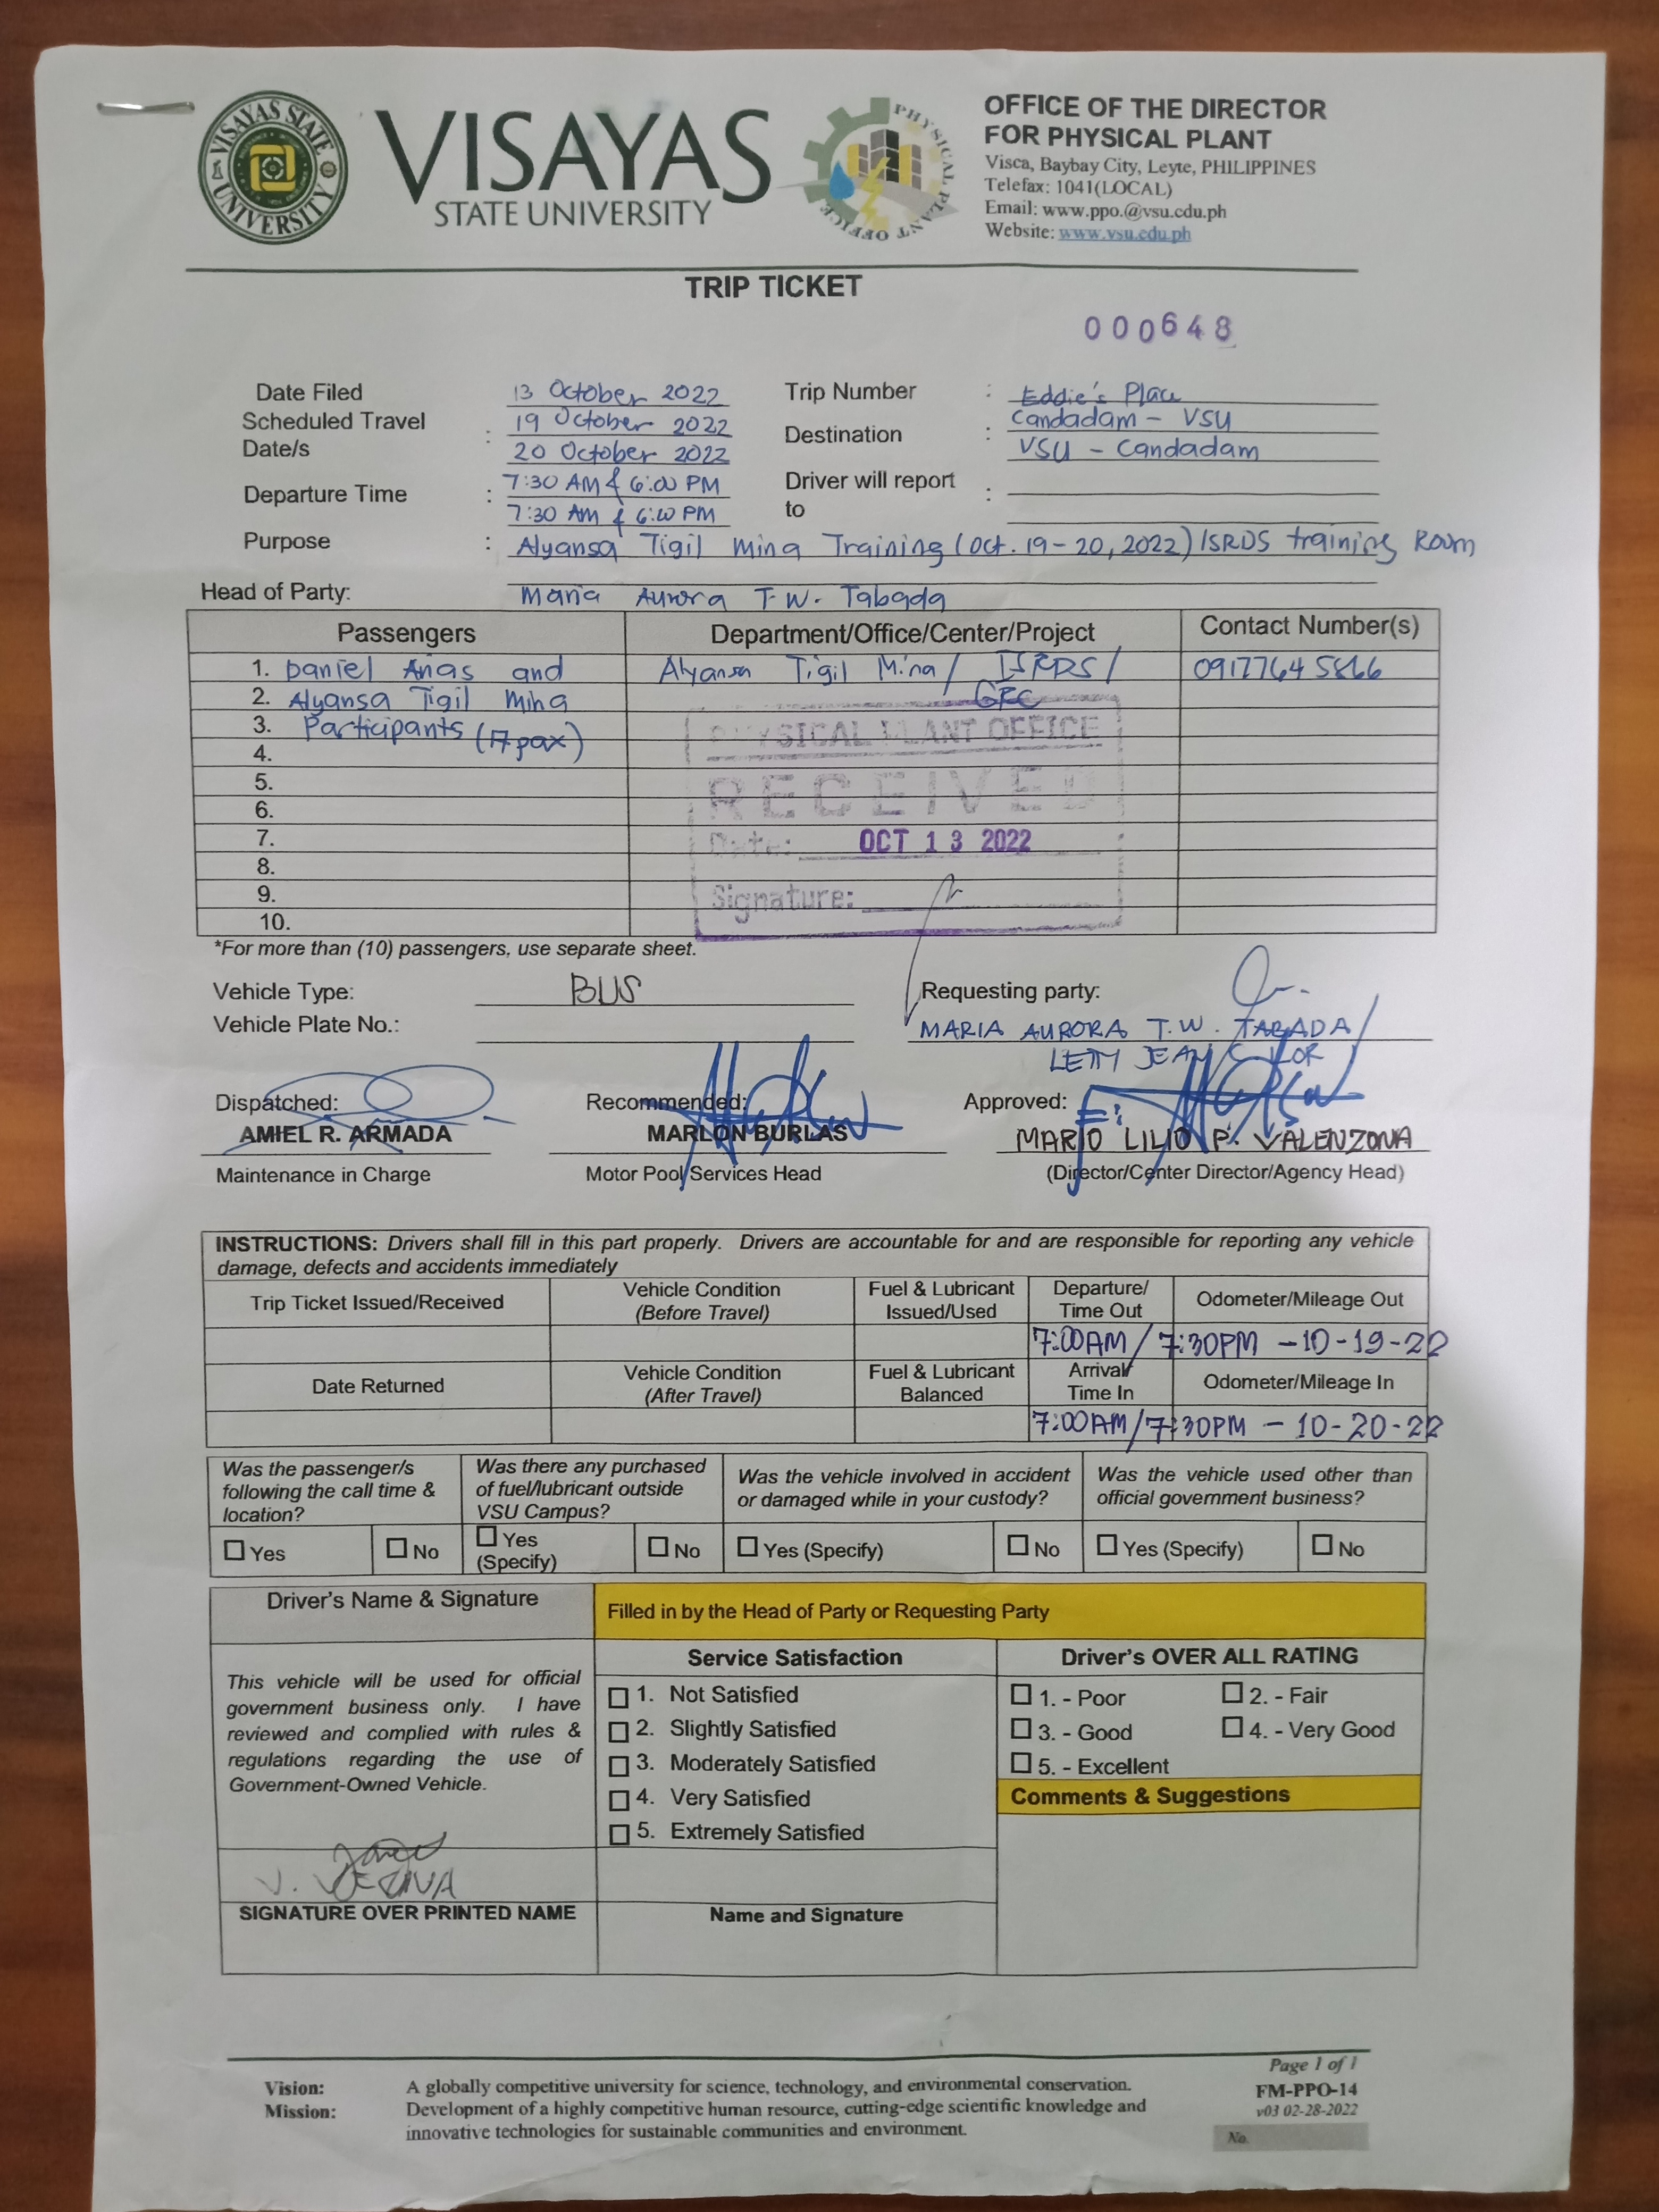 VISAYAS STATE UNIVERSITY
VISAYAS
STATE UNIVERSITY
PHYSICAL PLANT OFFICE
OFFICE OF THE DIRECTOR
FOR PHYSICAL PLANT
Visca, Baybay City, Leyte, PHILIPPINES
Telefax: 1041(LOCAL)
Email: www.ppo.@vsu.edu.ph
Website: www.vsu.edu.ph
TRIP TICKET
000648
Date Filed 13 October 2022 Trip Number : Eddie's Place
Scheduled Travel Date/s : 19 October 2022 Destination : Candadam - VSU
20 October 2022 VSU - Candadam
Departure Time : 7:30 AM & 6:00 PM Driver will report to :
7:30 AM & 6:00 PM
Purpose : Alyansa Tigil Mina Training (Oct. 19-20, 2022) ISRDS training Room
Head of Party: Maria Aurora T.W. Tabada
Passengers Department/Office/Center/Project Contact Number(s)
1. Daniel Arias and Alyansa Tigil Mina/ ISRDS/ 09177645866
2. Alyansa Tigil Mina
3. Participants (17 pax)
4.
5.
6.
7.
8.
9.
10.
PHYSICAL PLANT OFFICE
RECEIVED
Date: OCT 13 2022
Signature:
*For more than (10) passengers, use separate sheet.
Vehicle Type: BUS Requesting party:
Vehicle Plate No.: MARIA AURORA T.W. TABADA/
Dispatched: Recommended: Approved:
AMIEL R. ARMADA MARLON BURLAS MARIO LILIO P. VALENZONA
Maintenance in Charge Motor Pool Services Head (Director/Center Director/Agency Head)
INSTRUCTIONS: Drivers shall fill in this part properly. Drivers are accountable for and are responsible for reporting any vehicle
damage, defects and accidents immediately
Trip Ticket Issued/Received Vehicle Condition (Before Travel) Fuel & Lubricant Issued/Used Departure/ Time Out Odometer/Mileage Out
7:00AM/7:30PM - 10-19-22
Date Returned Vehicle Condition (After Travel) Fuel & Lubricant Balanced Arrival/ Time In Odometer/Mileage In
7:00AM/7:30PM - 10-20-22
Was the passenger/s following the call time & location? Was there any purchased of fuel/lubricant outside VSU Campus? Was the vehicle involved in accident or damaged while in your custody? Was the vehicle used other than official government business?
Yes No Yes (Specify) No Yes (Specify) No Yes (Specify) No
Driver's Name & Signature Filled in by the Head of Party or Requesting Party
Service Satisfaction Driver's OVER ALL RATING
This vehicle will be used for official
government business only. I have
reviewed and complied with rules &
regulations regarding the use of
Government-Owned Vehicle.
1. Not Satisfied 1. - Poor 2. - Fair
2. Slightly Satisfied 3. - Good 4. - Very Good
3. Moderately Satisfied 5. - Excellent
4. Very Satisfied Comments & Suggestions
5. Extremely Satisfied
SIGNATURE OVER PRINTED NAME Name and Signature
Page 1 of 1
Vision: A globally competitive university for science, technology, and environmental conservation. FM-PPO-14
Mission: Development of a highly competitive human resource, cutting-edge scientific knowledge and v03 02-28-2022
innovative technologies for sustainable communities and environment. No.